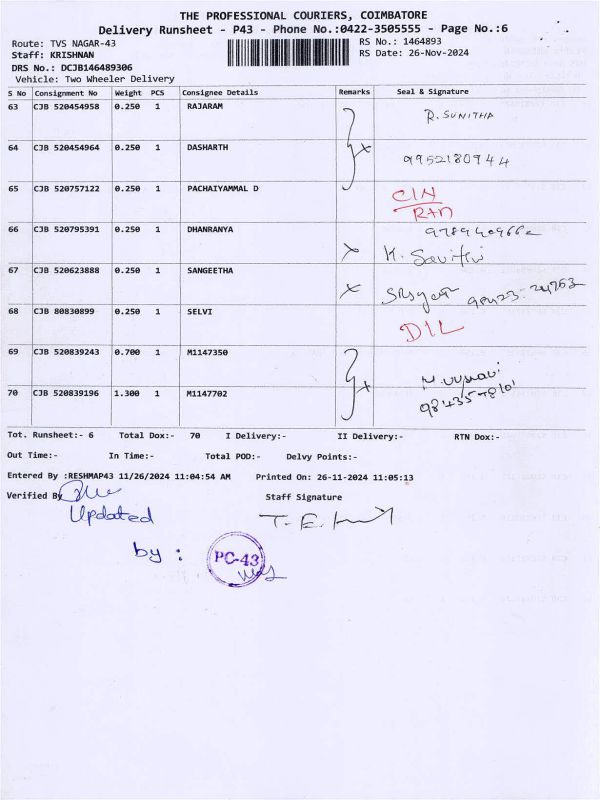 THE PROFESSIONAL COURIERS, COIMBATORE
Delivery Runsheet - P43 - Phone No.:0422-3505555 - Page No.:6
Route: TVS NAGAR-43
RS No.: 1464893
Staff: KRISHNAN
RS Date: 26-Nov-2024
DRS No.: DCJB146489306
Vehicle: Two Wheeler Delivery
S No Consignment No Weight PCS Consignee Details Remarks Seal & Signature
63 CJB 520454958 0.250 1 RAJARAM R. SUNITHA
64 CJB 520454964 0.250 1 DASHARTH 9952180944
65 CJB 520757122 0.250 1 PACHAIYAMMAL D
66 CJB 520795391 0.250 1 DHANRANYA
K. Savithri
67 CJB 520623888 0.250 1 SANGEETHA
68 CJB 80830899 0.250 1 SELVI D/L
69 CJB 520839243 0.700 1 M1147350
70 CJB 520839196 1.300 1 M1147702
Tot. Runsheet:- 6 Total Dox:- 70 I Delivery:- II Delivery:- RTN Dox:-
Out Time:- In Time:- Total POD:- Delvy Points:-
Entered By :RESHMAP43 11/26/2024 11:04:54 AM Printed On: 26-11-2024 11:05:13
Verified By Staff Signature
Updated
by :
PC-43